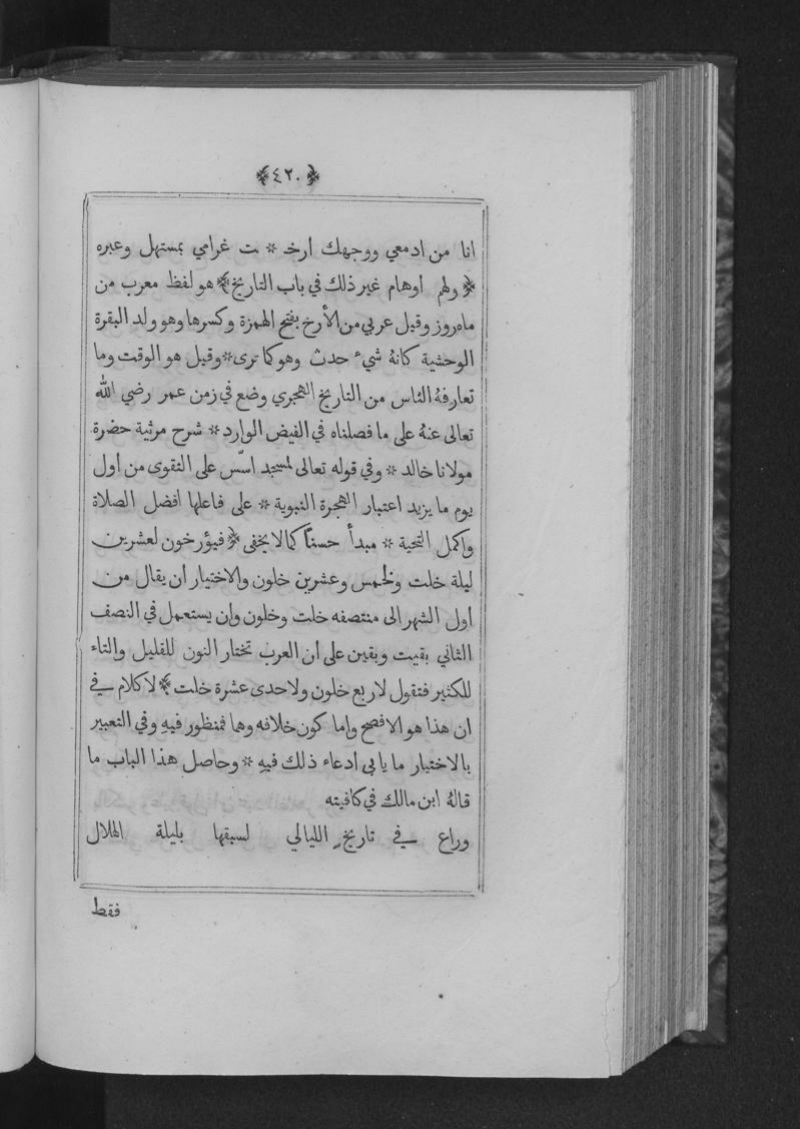 ﴿٤٢٠﴾
انا من ادمعي ووجهك ارخـ * ـت غرامي بمستهل وعبره
﴿ولهم اوهام غير ذلك في باب التاريخ﴾ هو لفظ معرب من
ماه روز وقيل عربي من الأرخ بفتح الهمزة وكسرها وهو ولد البقرة
الوحشية كانهُ شيء حدث وهو كما ترى * وقيل هو الوقت وما
تعارفهُ الناس من التاريخ الهجري وضع في زمن عمر رضي الله
تعالى عنهُ على ما فصلناه في الفيض الوارد * شرح مرثية حضرة
مولانا خالد * وفي قوله تعالى لمسجد اسّس على التقوى من اول
يوم ما يزيد اعتبار الهجرة النبوية * على فاعلها افضل الصلاة
واكمل التحية * مبدأ حسناً كما لا يخفى ﴿فيؤرخون لعشرين
ليلة خلت ولخمس وعشرين خلون والاختيار ان يقال من
اول الشهر الى منتصفه خلت وخلون وان يستعمل في النصف
الثاني بقيت وبقين على ان العرب تختار النون للقليل والتاء
للكثير فتقول لاربع خلون ولاحدى عشرة خلت﴾ لا كلام في
ان هذا هو الافصح واما كون خلافه وهما فمنظور فيهِ وفي التعبير
بالاختيار ما يابى ادعاء ذلك فيهِ * وحاصل هذا الباب ما
قالهُ ابن مالك في كافيته
وراع في تاريخِ الليالي لسبقها بليلة الهلال
فقط